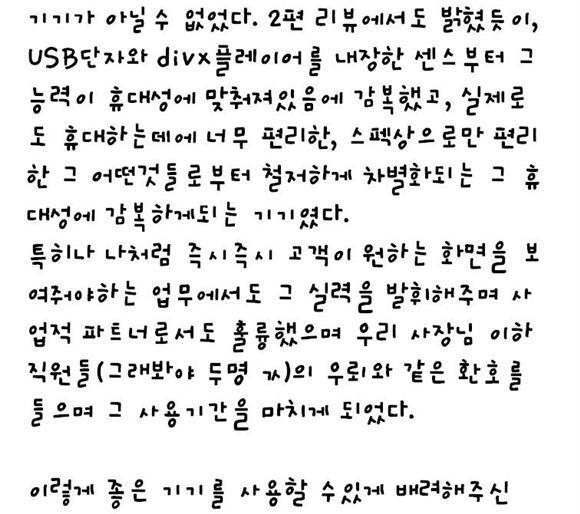 기기가 아닐 수 없었다. 2편 리뷰에서도 밝혔듯이,
USB단자와 divx플레이어를 내장한 센스부터 그
능력이 휴대성에 맞춰져있음에 감복했고, 실제로
도 휴대하는데에 너무 편리한, 스펙상으로만 편리
한 그 어떤것들로부터 철저하게 차별화되는 그 휴
대성에 감복하게되는 기기였다.
특히나 나처럼 즉시즉시 고객이 원하는 화면을 보
여줘야하는 업무에서도 그 실력을 발휘해주며 사
업적 파트너로서도 훌륭했으며 우리 사장님 이하
직원들(그래봐야 두명 ㅋ)의 우뢰와 같은 환호를
들으며 그 사용기간을 마치게 되었다.
이렇게 좋은 기기를 사용할 수있게 배려해주신